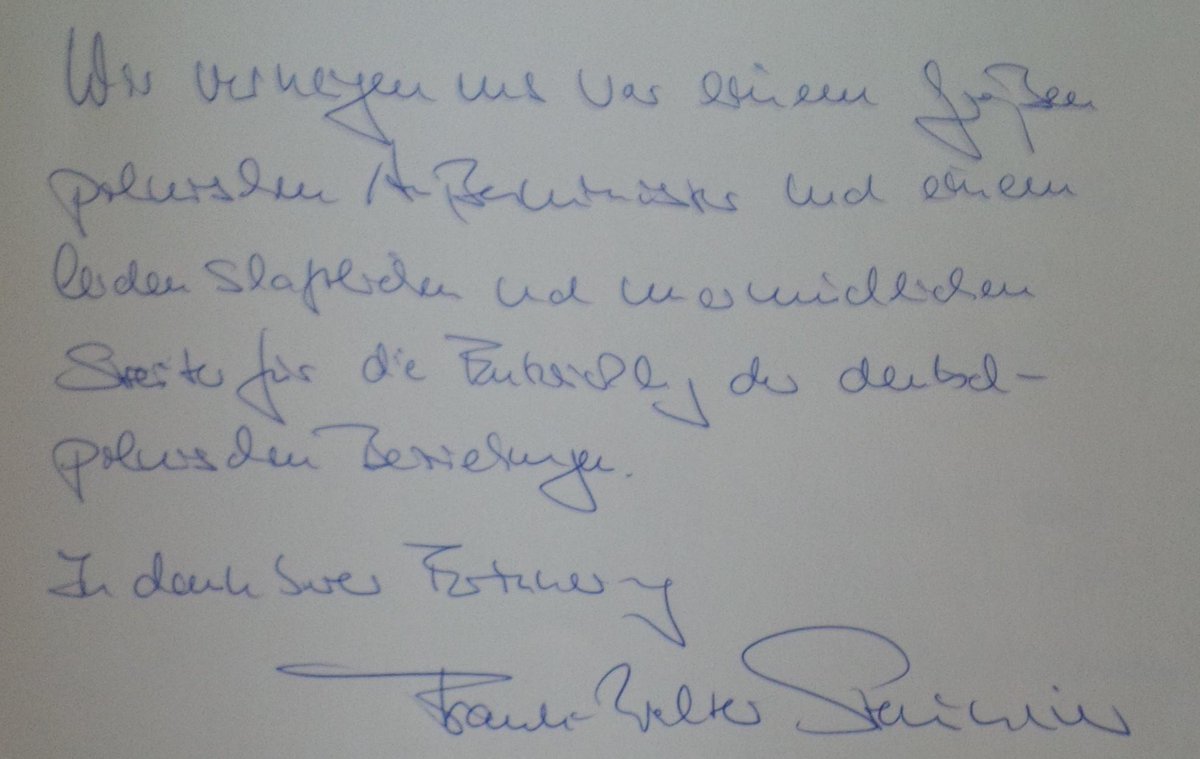 Wir verneigen uns vor einem großen
polnischen Außenminister und einem
leidenschaftlichen und unermüdlichen
Streiter für die Entwicklung der deutsch-
polnischen Beziehungen.
In dankbarer Erinnerung
Frank-Walter Steinmeier